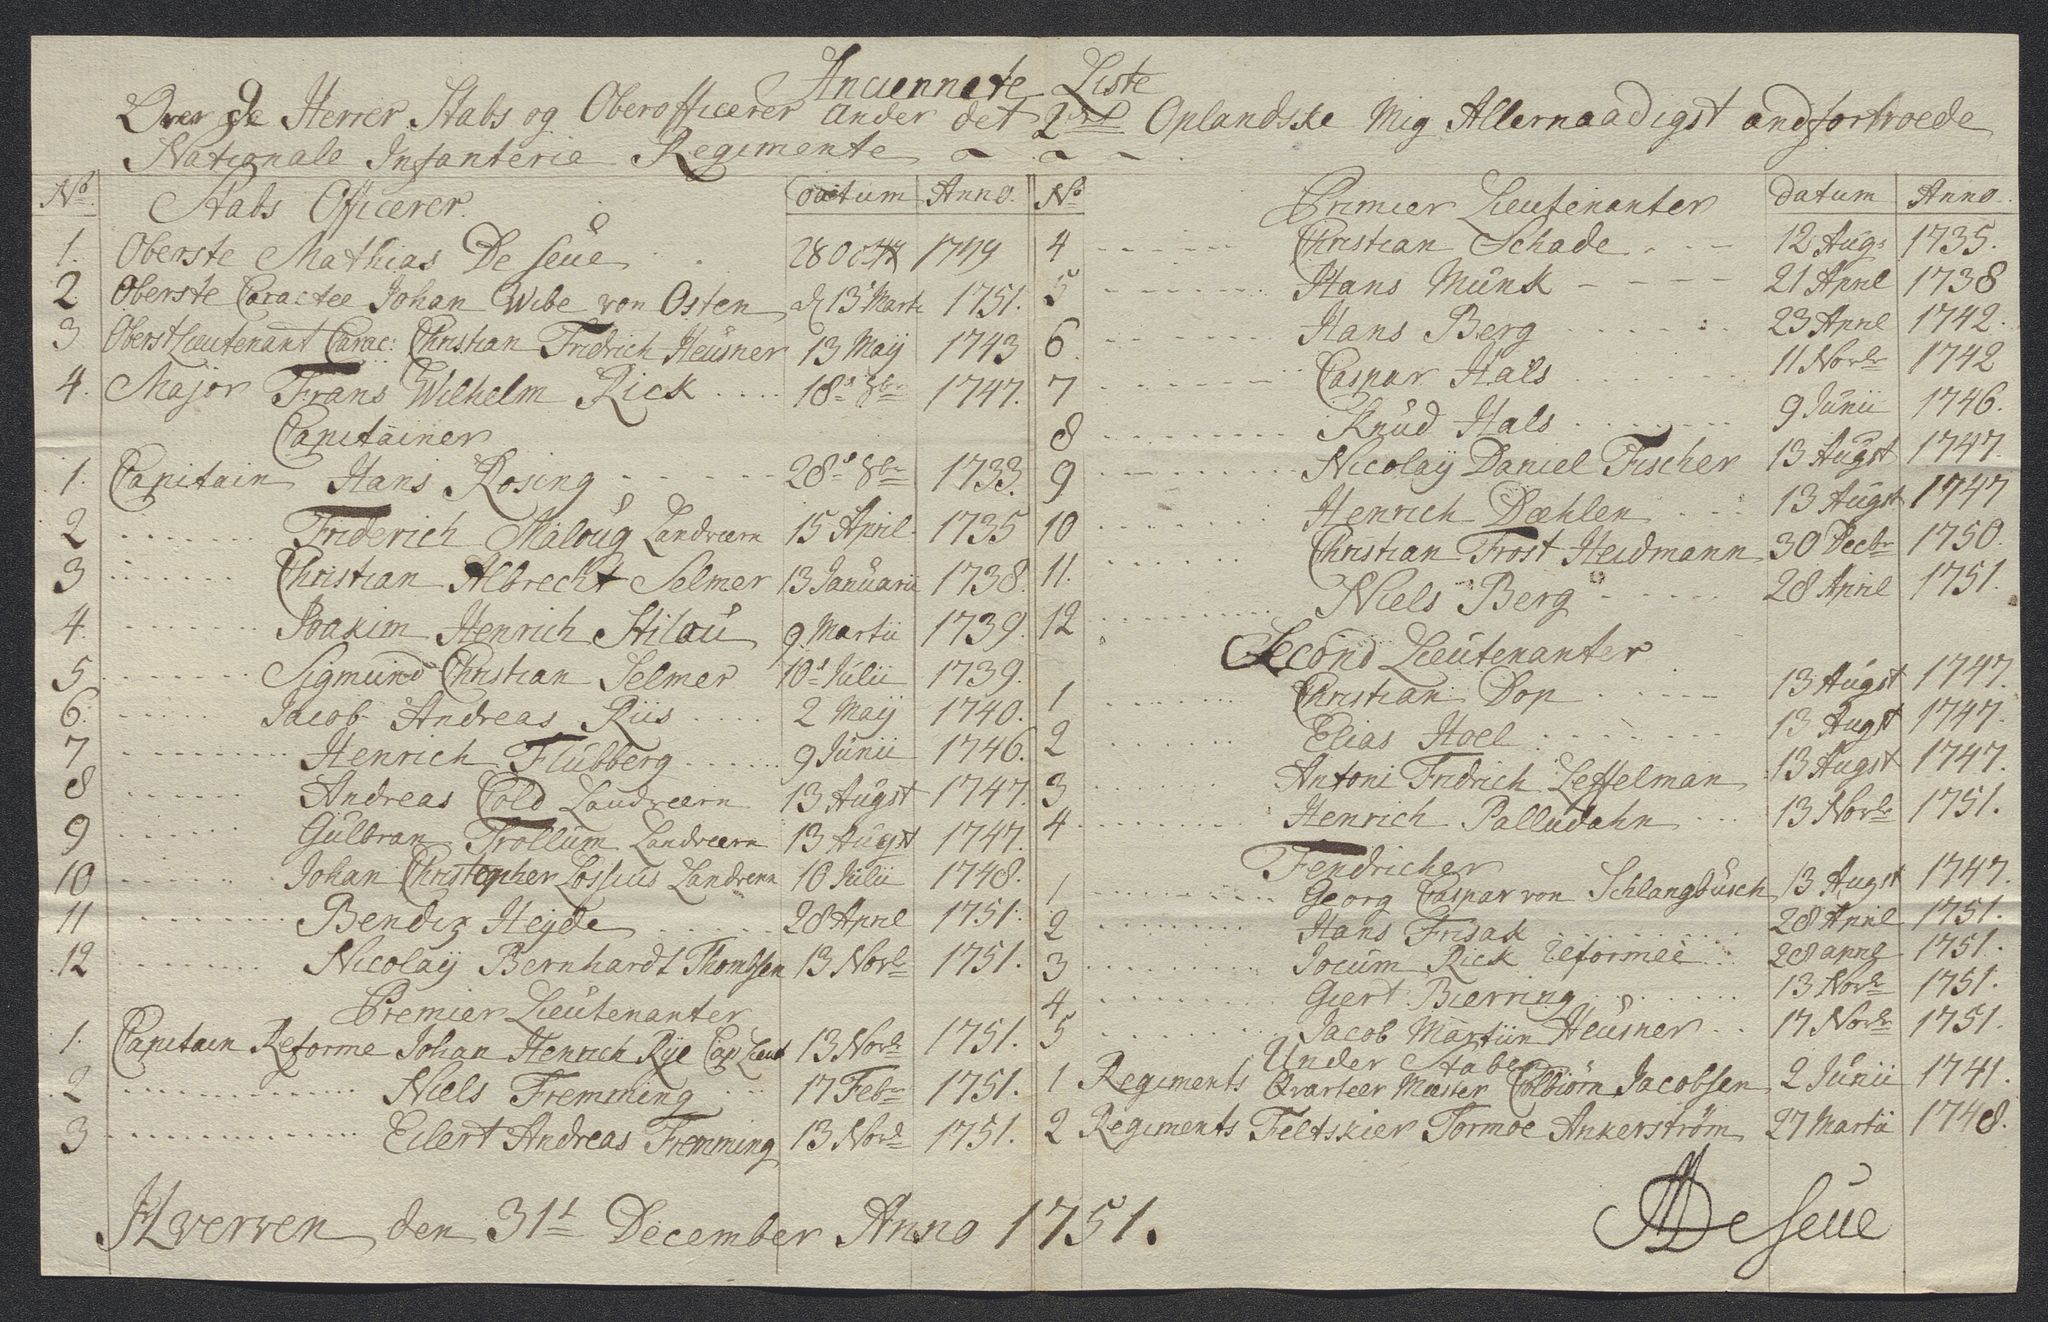 Anciennete Liste
Over De Herrer Stabs og Oberofficerer under det 2det Oplandske Mig Allernaadigst andfortroede
Nationale Infanterie Regimente
No. Stabs Officerer. datum Anno.
1. Oberste Mathias De Seue 28 Octb 1749
2. Oberste Caractee Johan Wibe von Osten d 13 Marti 1751.
3 OberstLieutenant Carac: Christian Fridrich Heusner 13 Maij 1743
4. Major Frans Wilhelm Rick 18de 8br 1747.
Capitainer
1. Capitain Hans Rosing 28de 8br 1733.
2 Friderich Maloug Landværn 15 April 1735
3 Christian Albrecht Selmer 13 Januarii 1738.
4. Joakim Henrich Stilau 9 Martii 1739.
5 Sigmund Christian Selmer 10d Julii 1739.
6. Jacob Andreas Riis 2 Maij 1740.
7 Henrich Flubberg 9 Junii 1746.
8 Andreas Cold Landværn 13 Augst 1747.
9 Gulbran Trollum Landværn 13 Augst 1747.
10 Johan Christopher Lossius Landværn 10 Julii 1748.
11 Bendix Heyde 28 April 1751.
12 Nicolaij Bernhardt Thomssen 13 Novbr 1751.
Premier Lieutenanter
1. Capitain Reforme Johan Henrich Rye Cap Lieut 13 Novbr 1751.
2 Niels Fremming 17 Febr 1751.
3 Eilert Andreas Fremming 13 Novbr 1751.
No Premier Lieutenanter datum Anno.
4 Christian Schade 12 Augs 1735.
5 Hans Munk 21 April 1738
6 Hans Berg 23 April 1742.
7 Caspar Hals 11 Novbr 1742
8 Knud Hals 9 Junii 1746.
9 Nicolaij Daniel Fischer 13 Augst 1747.
10 Henrich Dæhlen 13 Augst 1747
11. Christian Frost Heidmann 30 Decbr 1750.
12 Niels Berg 28 April 1751.
Second Lieutenanter
1 Christian Dop 13 Augst 1747.
2 Elias Hoel 13 Augst 1747.
3 Antoni Fridrich Leffelman 13 Augst 1747.
4 Henrich Palludahn 13 Novbr 1751.
Fendricher
1 Georg Caspar von Schlangbusch 13 Augst 1747.
2 Hans Frisak 28 April 1751.
3 Jocum Rick reformeè 28 april 1751.
4 Giert Bierring 13 Novbr 1751.
5 Jacob Martiin Heusner 17 Novbr 1751.
Under Stabe
1 Regiments Qvarteer Mæster Colbiørn Jacobsen 2 Junii 1741.
2 Regiments Feltskier Tormoe Ankerstrøm 27 Martii 1748.
Hverven den 31t December Anno 1751.
MDeSeue